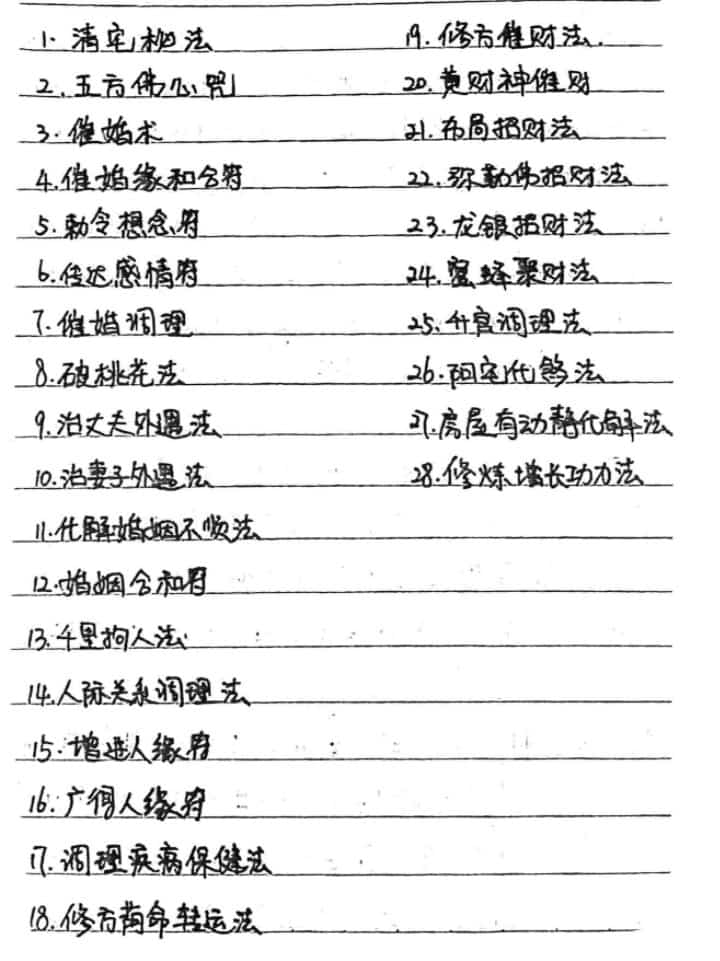 1. 清宅秘法
2. 五方佛心咒
3. 催婚术
4. 催婚缘和合符
5. 勅令想念符
6. 传达感情符
7. 催婚调理
8. 破桃花法
9. 治丈夫外遇法
10. 治妻子外遇法
11. 化解婚姻不顺法
12. 婚姻合和符
13. 千里拘人法
14. 人际关系调理法
15. 增进人缘符
16. 广得人缘符
17. 调理疾病保健法
18. 修方荫命转运法
19. 修方催财法.
20. 黄财神催财
21. 布局招财法
22. 弥勤佛招财法
23. 龙银招财法
24. 蜜蜂聚财法
25. 升官调理法
26. 阳宅化煞法
27. 房屋有动静化解法
28. 修炼增长功力法